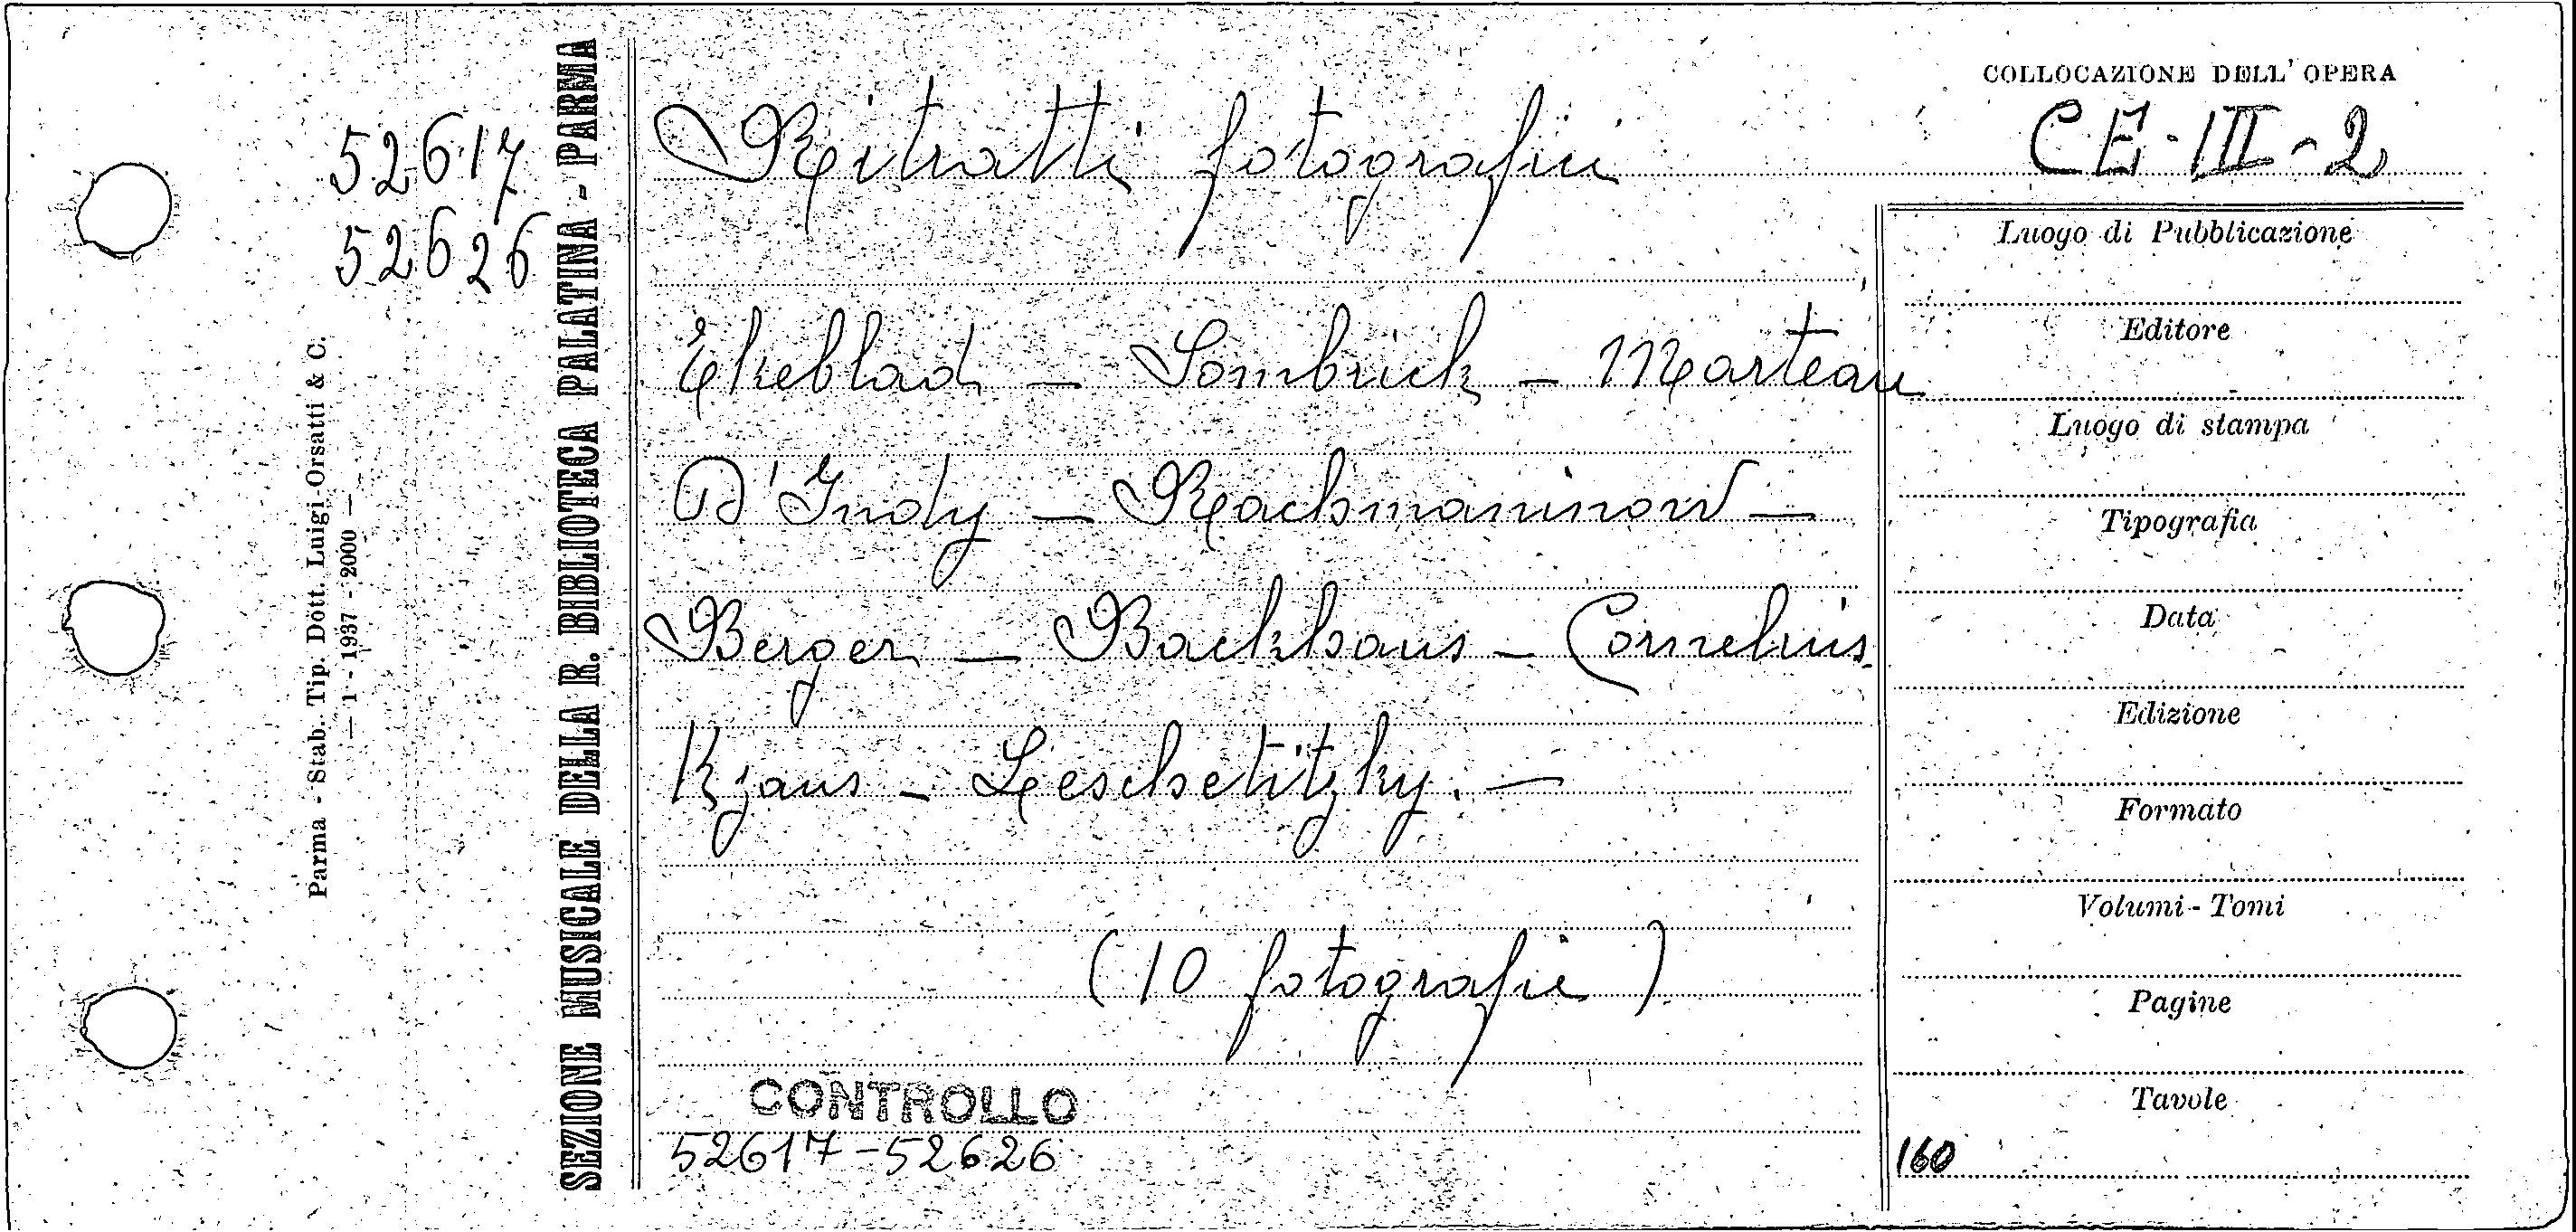 52617
52626
Parma - Stab. Tip. Dott. Luigi Orsatti & C.
— 1 - 1937 - 2000 —
SEZIONE MUSICALE DELLA R. BIBLIOTECA PALATINA - PARMA
Ritratti fotografici
Ekeblad - Sombrich - Marteau
D'Indy - Rachmaninow -
Berger - Backhaus - Cornelius
Kjaus - Leschetitzky. -
(10 fotografie)
CONTROLLO
52617-52626
COLLOCAZIONE DELL'OPERA
CE-III-2
Luogo di Pubblicazione
Editore
Luogo di stampa
Tipografia
Data
Edizione
Formato
Volumi - Tomi
Pagine
Tavole
160